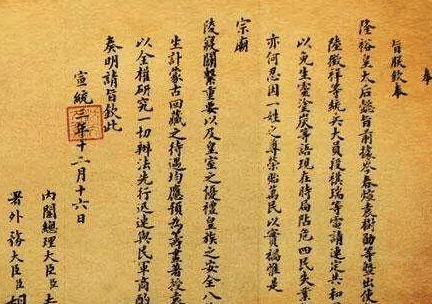 奉
旨朕欽奉
隆裕皇太后懿旨前據岑春煊袁樹勛等暨出使
陸徵祥等統兵大員段祺瑞等電請速定共和
以免生靈塗炭等語現在時局阽危四民失業
亦何忍因一姓之尊榮貽萬民以實禍惟是
宗廟
陵寢關繫重要以及皇室之優禮皇族之安全八
生計蒙古回藏之待遇均應預為籌畫著授袁
以全權研究一切辦法先行迅速與民軍商酌
奏明請旨欽此
宣統三年十二月十六日
內閣總理大臣臣
署外務大臣臣胡